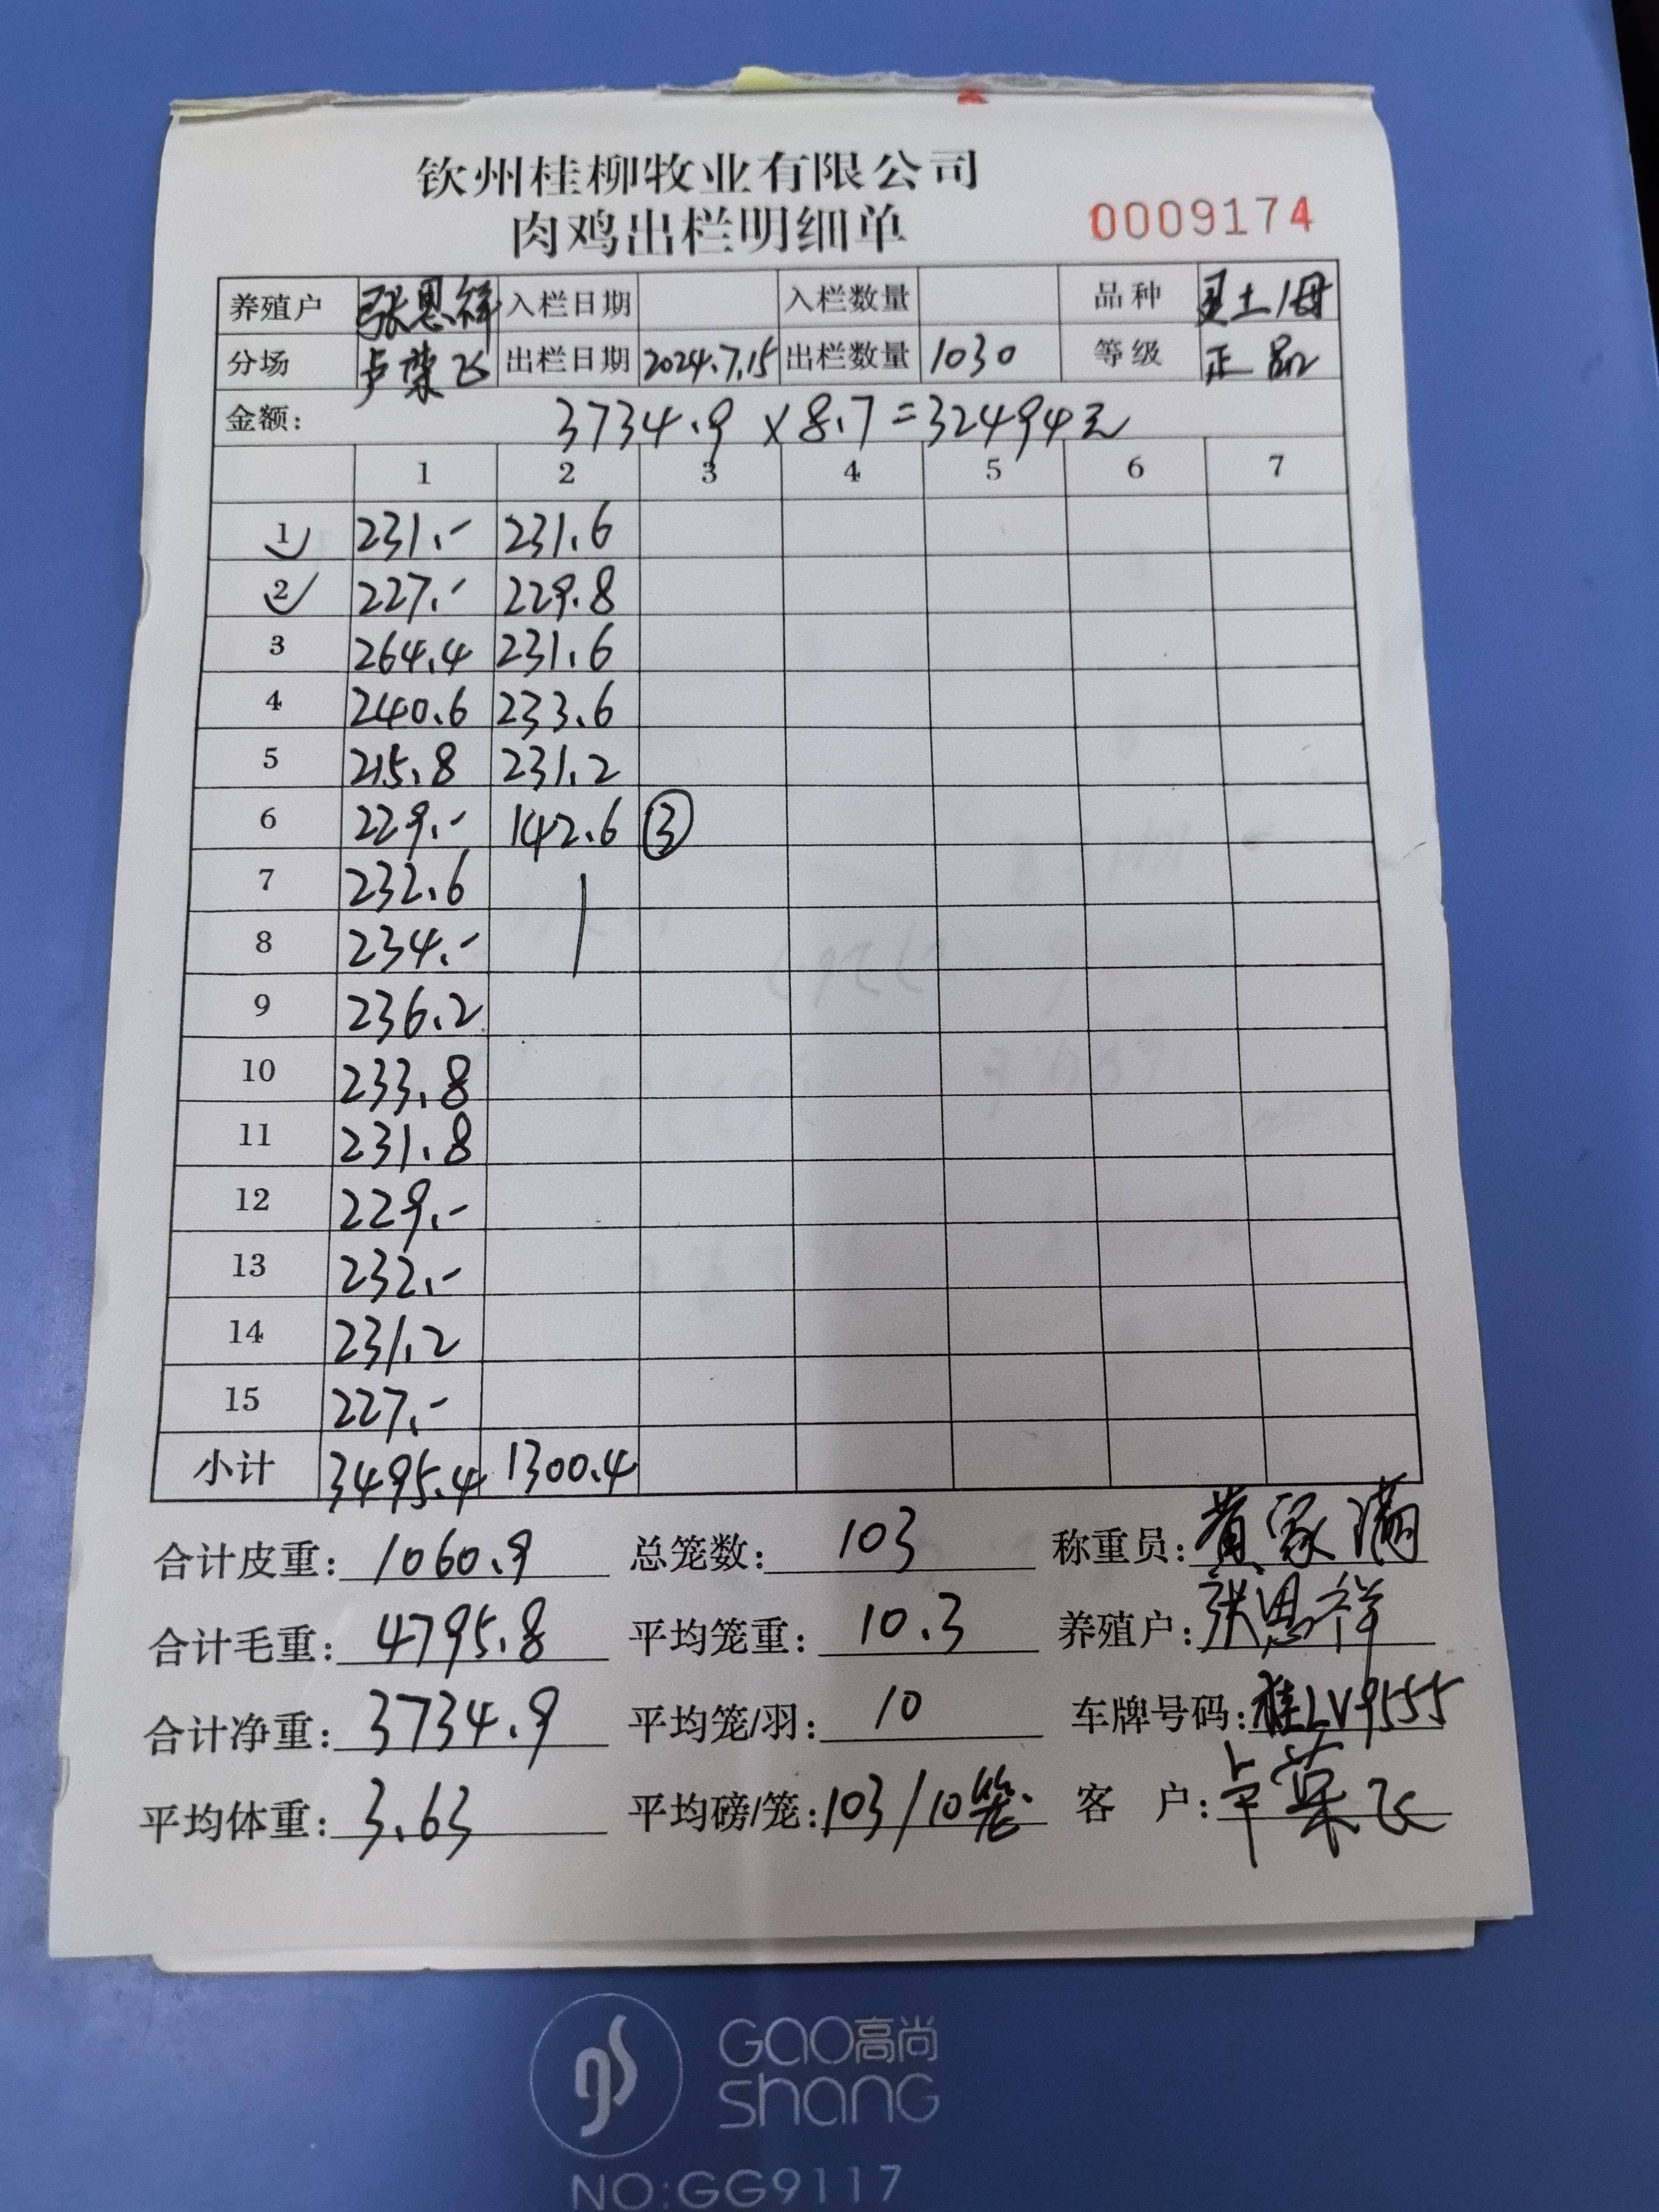 钦州桂柳牧业有限公司
肉鸡出栏明细单 0009174
养殖户 张恩祥 入栏日期 入栏数量 品种 土1母
分场 卢荣飞 出栏日期 2024.7.15 出栏数量 1030 等级 正品
金额: 3734.9×8.7=32494元
1 2 3 4 5 6 7
1 231.- 231.6
2 227.- 229.8
3 264.4 231.6
4 240.6 233.6
5 215.8 231.2
6 229.- 142.6 ③
7 232.6
8 234.-
9 236.2
10 233.8
11 231.8
12 229.-
13 232.-
14 231.2
15 227.-
小计 3495.4 1300.4
合计皮重: 1060.9 总笼数: 103 称重员: 黄家满
合计毛重: 4795.8 平均笼重: 10.3 养殖户: 张恩祥
合计净重: 3734.9 平均笼/羽: 10 车牌号码: 桂LV9555
平均体重: 3.63 平均磅/笼: 103/10笼. 客户: 卢荣飞
GAO高尚
SHANG
NO:GG9117